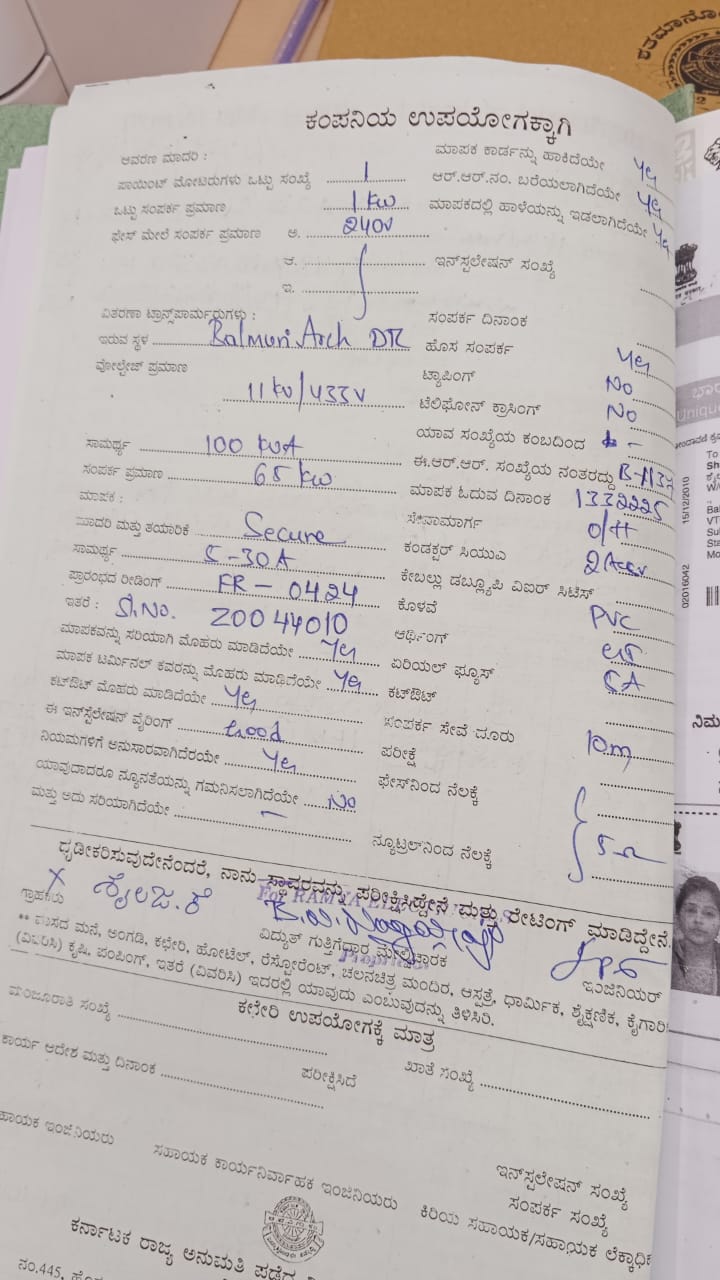 ಕಂಪನಿಯ ಉಪಯೋಗಕ್ಕಾಗಿ
ಆವರಣ ಮಾದರಿ : ಮಾಪಕ ಕಾರ್ಡನ್ನು ಹಾಕಿದೆಯೇ Yes
ಪಾಯಿಂಟ್ ಮೋಟರುಗಳು ಒಟ್ಟು ಸಂಖ್ಯೆ 1 ಆರ್.ಆರ್.ನಂ. ಬರೆಯಲಾಗಿದೆಯೇ Yes
ಒಟ್ಟು ಸಂಪರ್ಕ ಪ್ರಮಾಣ 1 kw ಮಾಪಕದಲ್ಲಿ ಹಾಳೆಯನ್ನು ಇಡಲಾಗಿದೆಯೇ Yes
ಫೇಸ್ ಮೇಲೆ ಸಂಪರ್ಕ ಪ್ರಮಾಣ ಅ. 240V
ಆ. ಇನ್‌ಸ್ಟಲೇಷನ್ ಸಂಖ್ಯೆ
ಇ.
ವಿತರಣಾ ಟ್ರಾನ್ಸ್‌ಪಾರ್ಮರುಗಳು : ಸಂಪರ್ಕ ದಿನಾಂಕ
ಇರುವ ಸ್ಥಳ Balmuri Arch DTC ಹೊಸ ಸಂಪರ್ಕ Yes
ವೋಲ್ಟೇಜ್ ಪ್ರಮಾಣ ಟ್ಯಾಪಿಂಗ್ No
11 kv/433V ಟೆಲಿಫೋನ್ ಕ್ರಾಸಿಂಗ್ No
ಯಾವ ಸಂಖ್ಯೆಯ ಕಂಬದಿಂದ -
ಸಾಮರ್ಥ್ಯ 100 KVA ಈ.ಆರ್.ಆರ್. ಸಂಖ್ಯೆಯ ನಂತರದ್ದು
ಸಂಪರ್ಕ ಪ್ರಮಾಣ 65 kw ಮಾಪಕ ಓದುವ ದಿನಾಂಕ 1332225
ಮಾಪಕ : ಸೇವಾಮಾರ್ಗ O/H
ಮಾದರಿ ಮತ್ತು ತಯಾರಿಕೆ Secure ಕಂಡಕ್ಟರ್ ಸಿಯುವಿ
ಸಾಮರ್ಥ್ಯ 5-30A ಕೇಬಲ್ಲು ಡಬ್ಲ್ಯೂಪಿ ವಿಐರ್ ಸಿಟಿಸ್
ಪ್ರಾರಂಭದ ರೀಡಿಂಗ್ FR - 0424 ಕೊಳವೆ PVC
ಇತರೆ : Sl.No. Z0044010 ಆರ್ಥಿಂಗ್
ಮಾಪಕವನ್ನು ಸರಿಯಾಗಿ ಮೊಹರು ಮಾಡಿದೆಯೇ Yes ಏರಿಯಲ್ ಫ್ಯೂಸ್ 5A
ಮಾಪಕ ಟರ್ಮಿನಲ್ ಕವರನ್ನು ಮೊಹರು ಮಾಡಿದೆಯೇ Yes ಕಟ್‌ಔಟ್
ಕಟ್‌ಔಟ್ ಮೊಹರು ಮಾಡಿದೆಯೇ Yes ಸಂಪರ್ಕ ಸೇವೆ ದೂರು 10m
ಈ ಇನ್‌ಸ್ಟಲೇಷನ್ ವೈರಿಂಗ್ Good ಪರೀಕ್ಷೆ
ನಿಯಮಗಳಿಗೆ ಅನುಸಾರವಾಗಿದೆರಯೇ Yes ಫೇಸ್‌ನಿಂದ ನೆಲಕ್ಕೆ
ಯಾವುದಾದರೂ ನ್ಯೂನತೆಯನ್ನು ಗಮನಿಸಲಾಗಿದೆಯೇ No
ಮತ್ತು ಅದು ಸರಿಯಾಗಿದೆಯೇ - ನ್ಯೂಟ್ರಲ್‌ನಿಂದ ನೆಲಕ್ಕೆ 5Ω
ಧೃಡೀಕರಿಸುವುದೇನೆಂದರೆ, ನಾನು ಸ್ಥಾವರವನ್ನು ಪರೀಕ್ಷಿಸಿದ್ದೇನೆ ಮತ್ತು ರೇಟಿಂಗ್ ಮಾಡಿದ್ದೇನೆ.
X ಶೈಲಜ.ಕೆ For RAMYA
ಗ್ರಾಹಕರು ವಿದ್ಯುತ್ ಗುತ್ತಿಗೆದಾರ ಮೇಲ್ವಿಚಾರಕ ಇಂಜಿನಿಯರ್
** ವಾಸದ ಮನೆ, ಅಂಗಡಿ, ಕಛೇರಿ, ಹೋಟೆಲ್, ರೆಸ್ಟೋರೆಂಟ್, ಚಲನಚಿತ್ರ ಮಂದಿರ, ಆಸ್ಪತ್ರೆ, ಧಾರ್ಮಿಕ, ಶೈಕ್ಷಣಿಕ, ಕೈಗಾರಿ
(ವಿವರಿಸಿ) ಕೃಷಿ, ಪಂಪಿಂಗ್, ಇತರೆ (ವಿವರಿಸಿ) ಇದರಲ್ಲಿ ಯಾವುದು ಎಂಬುವುದನ್ನು ತಿಳಿಸಿರಿ.
ಕಛೇರಿ ಉಪಯೋಗಕ್ಕೆ ಮಾತ್ರ
ಮಂಜೂರಾತಿ ಸಂಖ್ಯೆ ಖಾತೆ ಸಂಖ್ಯೆ
ಕಾರ್ಯ ಆದೇಶ ಮತ್ತು ದಿನಾಂಕ ಪರೀಕ್ಷಿಸಿದೆ
ಇನ್‌ಸ್ಟಲೇಷನ್ ಸಂಖ್ಯೆ
ಸಂಪರ್ಕ ಸಂಖ್ಯೆ
ಹಾಯಕ ಇಂಜಿನಿಯರು ಸಹಾಯಕ ಕಾರ್ಯನಿರ್ವಾಹಕ ಇಂಜಿನಿಯರು ಕಿರಿಯ ಸಹಾಯಕ/ಸಹಾಯಕ ಲೆಕ್ಕಾಧಿಕ
ಕರ್ನಾಟಕ ರಾಜ್ಯ ಅನುಮತಿ ಪಡೆದ
ನಂ.445,
15/12/2010
02016042
Unique
To